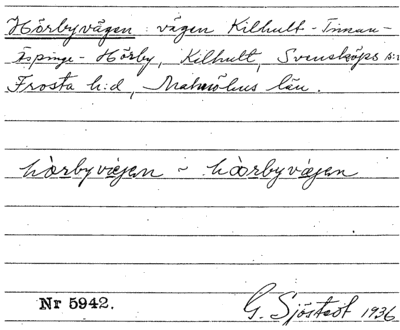 Hörbyvägen : vägen Kilhult - Tinnan-
Äspinge - Hörby, Kilhult, Svensköps s:n
Frosta h:d, Malmöhus län.
hòrbyvæjen ~ hòorbyvæjen
Nr 5942.
G. Sjöstedt 1936